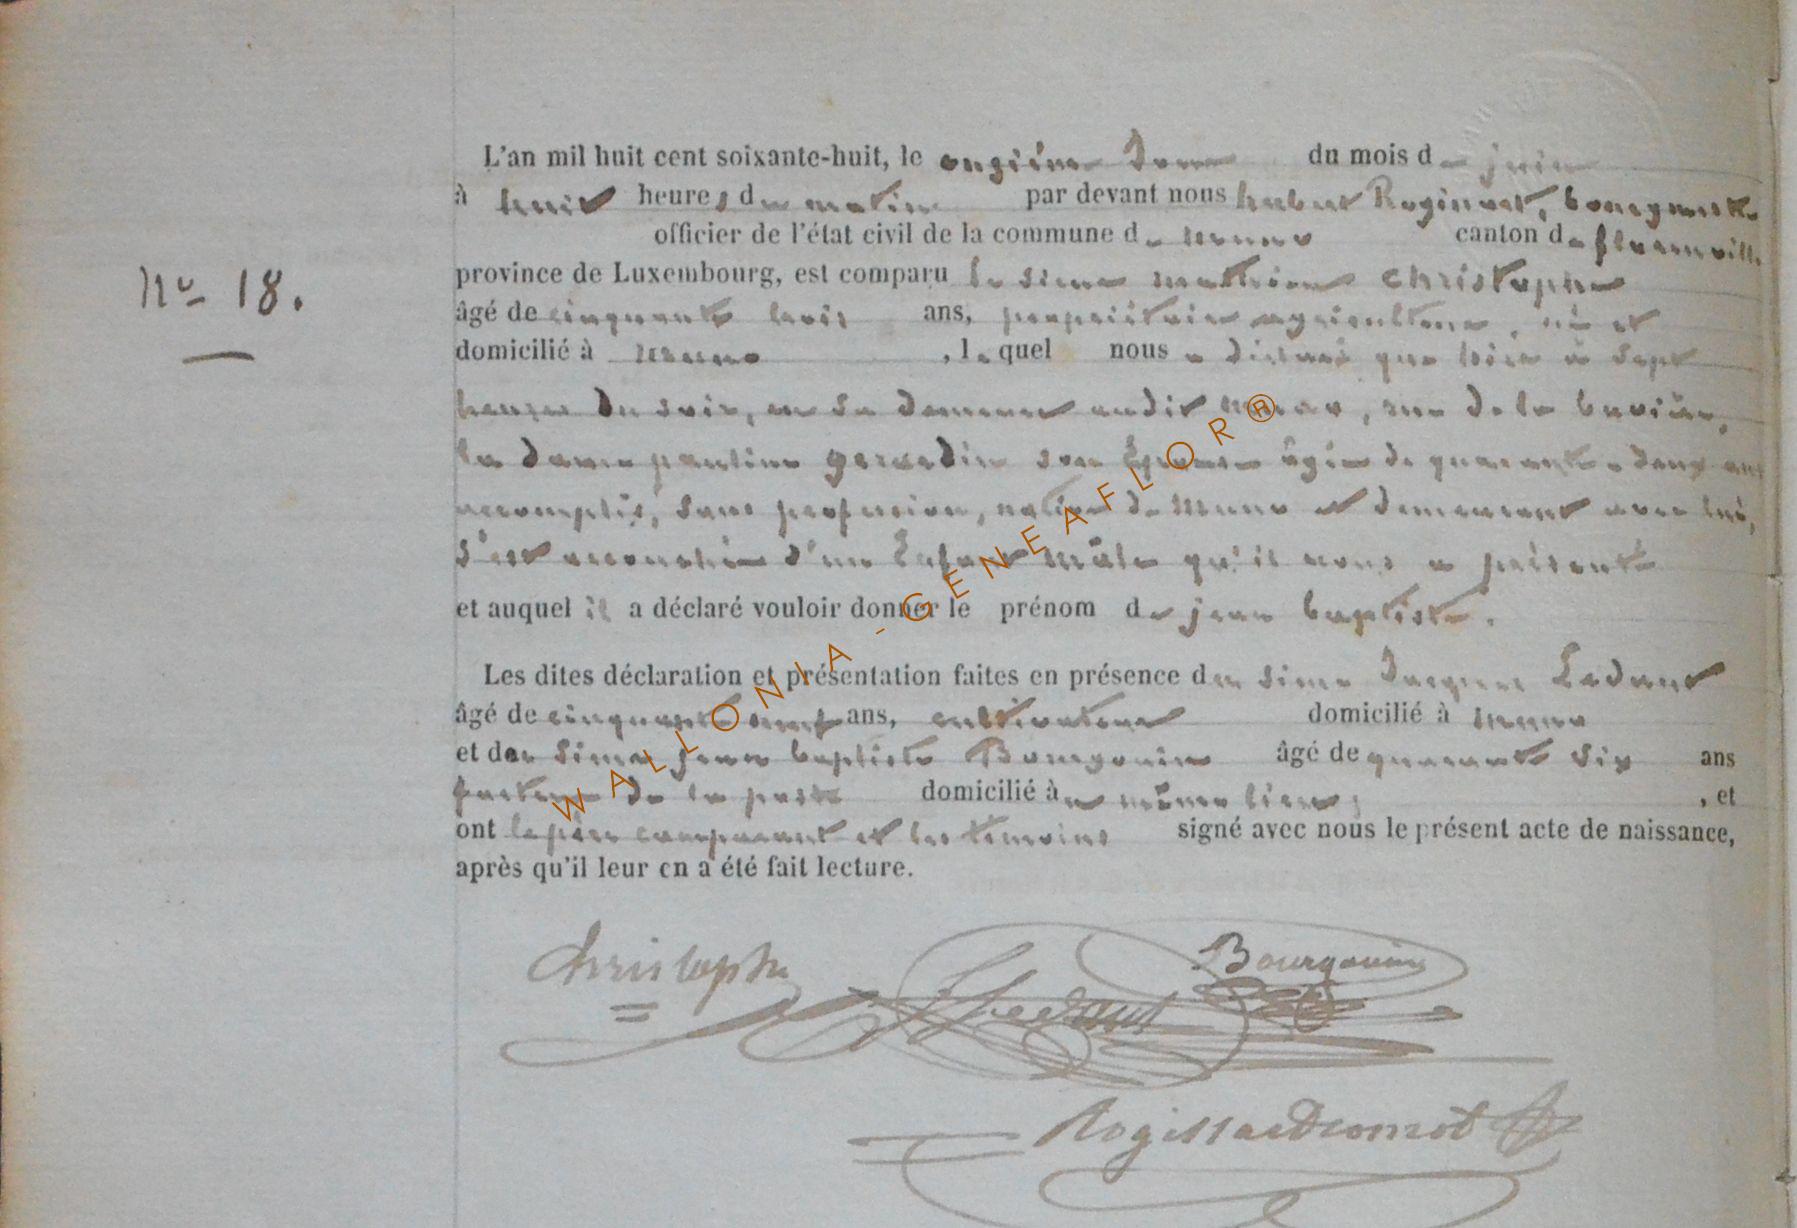 L'an mil huit cent soixante-huit, le onzième Jour du mois de juin
à huit heures du matin par devant nous hubert bourgmestre
officier de l'état civil de la commune de muno canton de florenville
province de Luxembourg, est comparu le sieur Christophe
âgé de cinquante trois ans, propriétaire agriculteur, né et
domicilié à muno, lequel nous a déclaré que hier à sept
heures du soir, en sa demeure audit muno, rue de la
la dame pauline gerardin son Epouse âgée de quarante-deux ans
accomplis, sans profession, native de muno et demeurant avec lui,
s'est accouchée d'un Enfant mâle qu'il nous a présenté
et auquel il a déclaré vouloir donner le prénom de jean baptiste.
Les dites déclaration et présentation faites en présence du sieur Jacques Ledant
âgé de cinquante neuf ans, cultivateur domicilié à muno
et du sieur Jean baptiste Bourgouin âgé de quarante six ans
facteur de la poste domicilié à même lieu; , et
ont le père comparant et les témoins signé avec nous le présent acte de naissance,
après qu'il leur en a été fait lecture.
No 18.
Christophe
Ledant
Bourgouin
WALLONIA-GENEAFLOR®